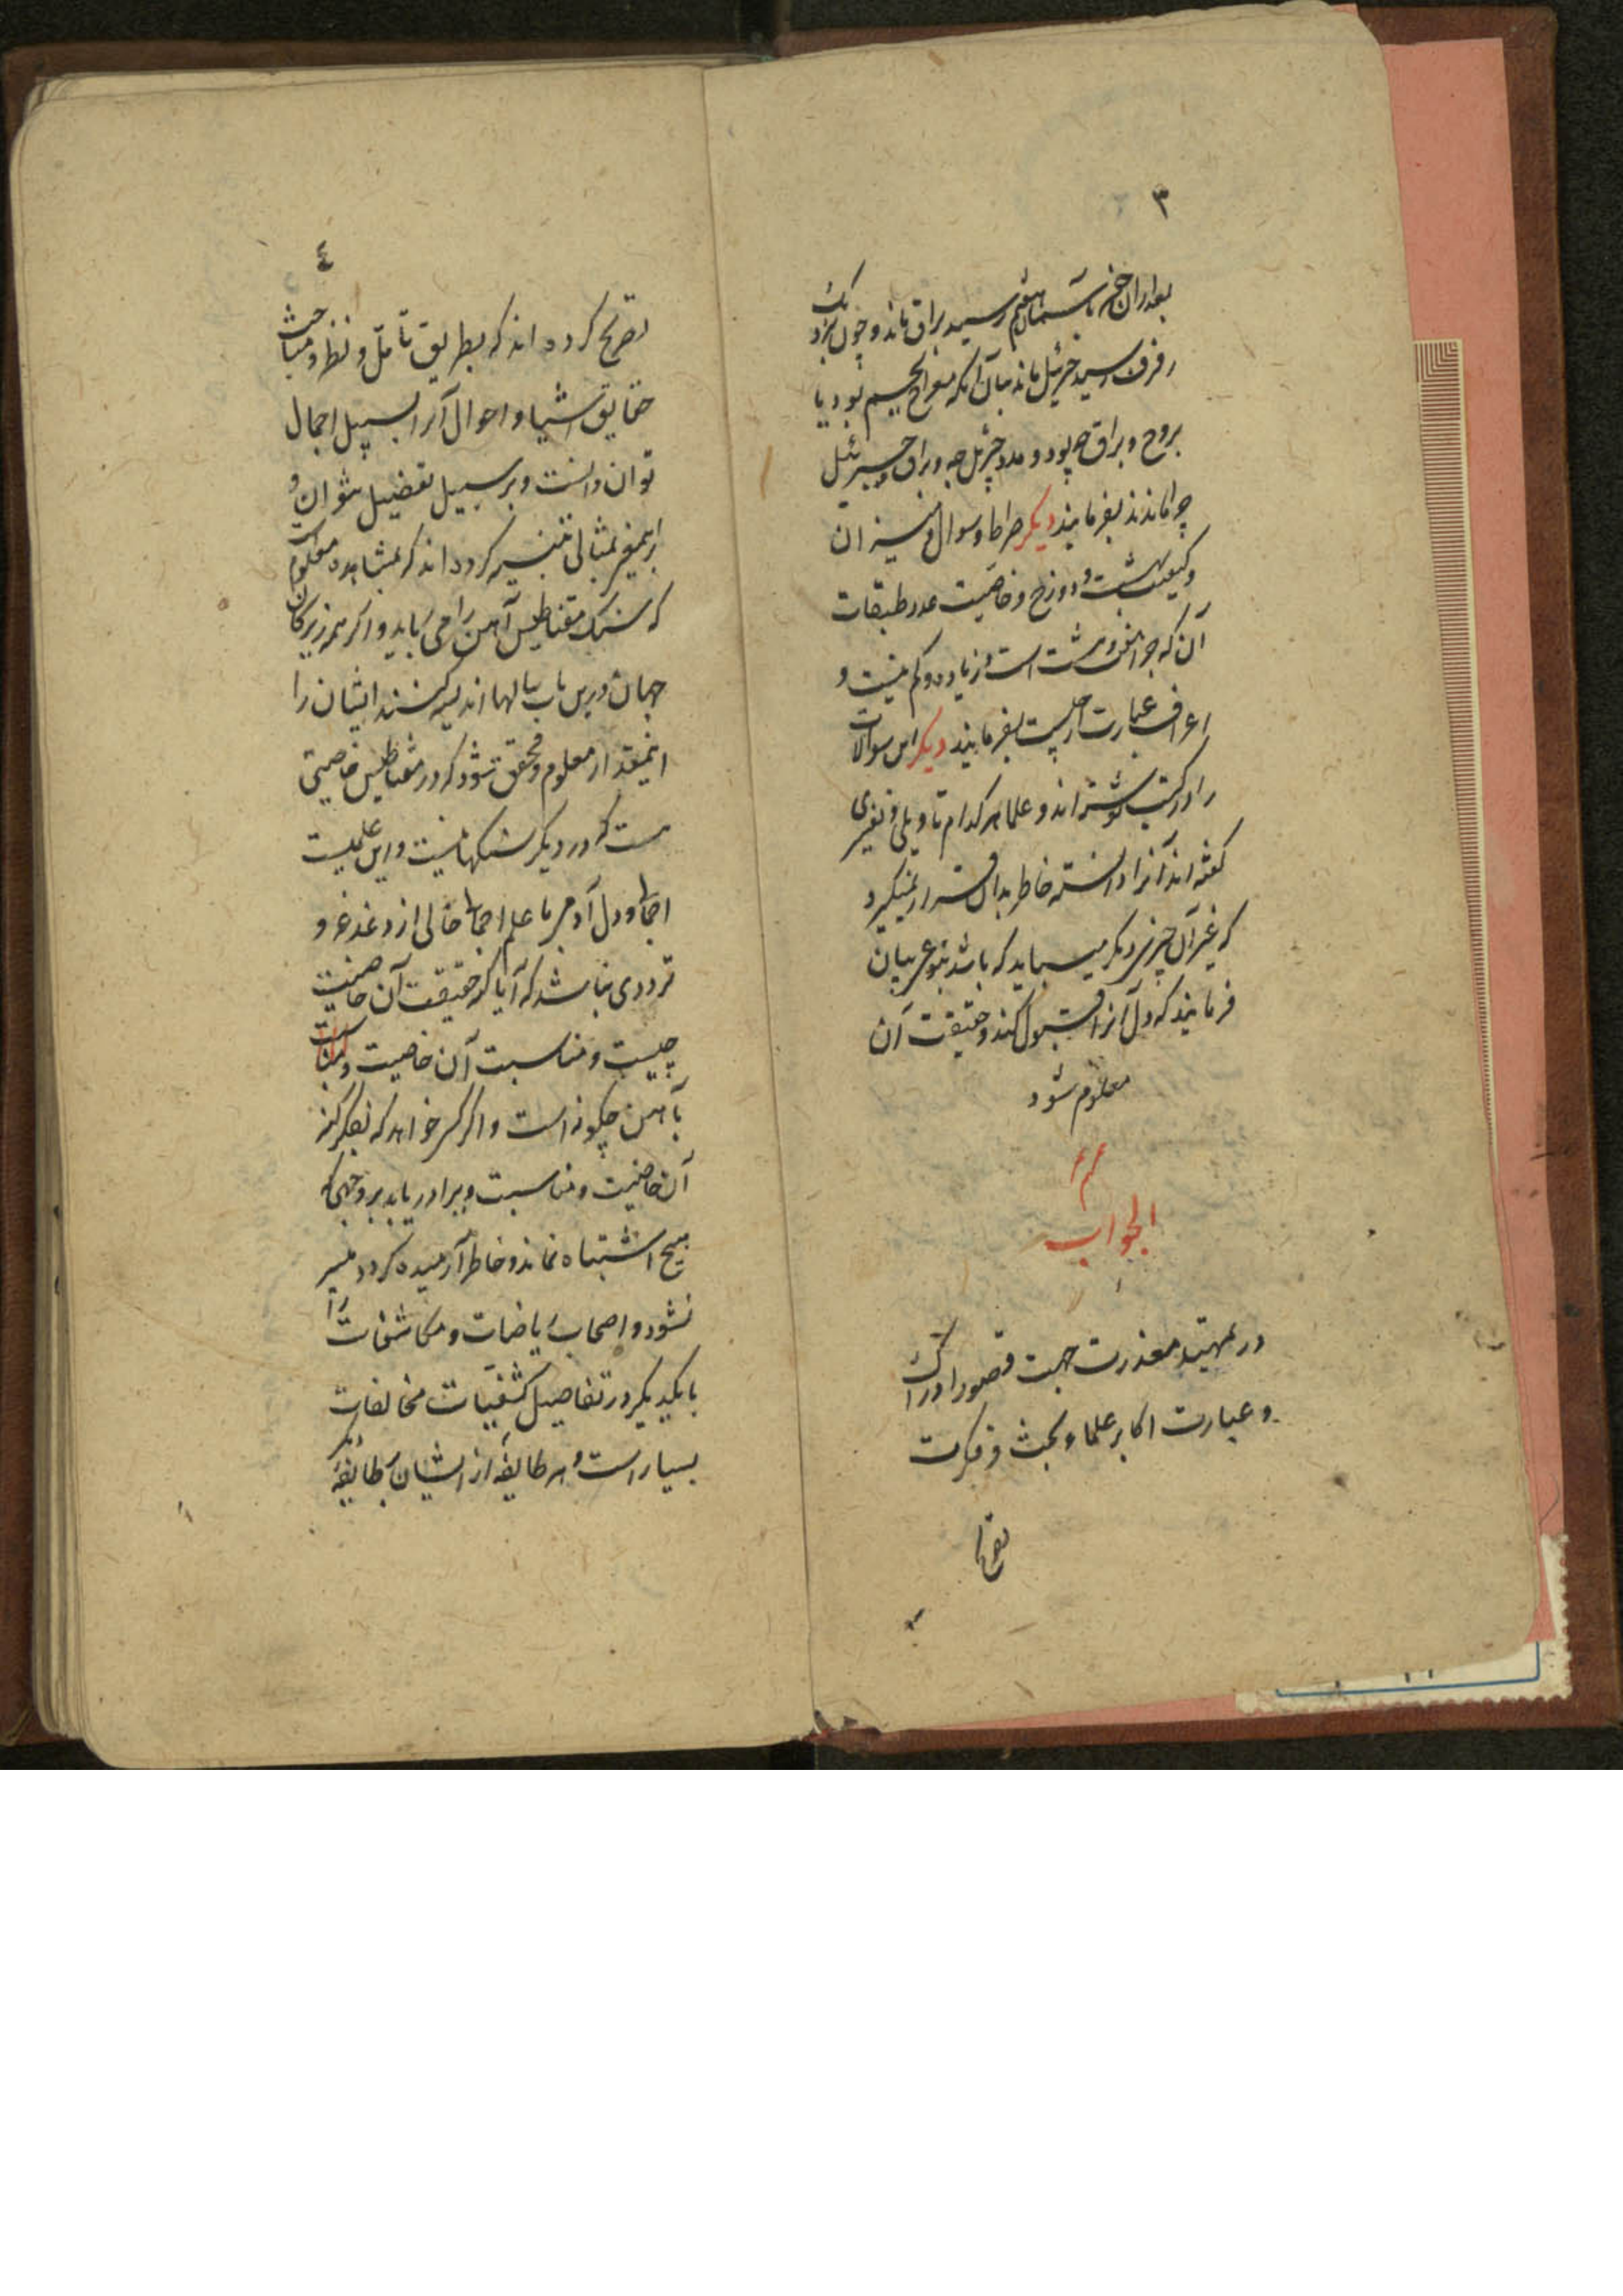 ۳
بعد از آن چون بآسمان هفتم رسید براق بماند و چون نزدیک
رفرف رسید جبرئیل بماند بیان آنکه معراج بجسم بود یا
بروح و براق چه بود و مدد جبرئیل چه و براق و جبرئیل
چرا ماندند بفرمایند دیگر صراط و سوال و میزان
و کیفیت بهشت و دوزخ و خاصیت عدد طبقات
آن که چرا هفت و هشت است و زیاده و کم نیست و
اعراف عبارت از چیست بفرمایند دیگر این سوالات
را در کتب نوشته‌اند و علما هر کدام تاویلی و تفسیری
گفته‌اند آنرا دانسته خاطر بدان قرار نمیگیرد
که غیر آن چیزی دیگر میباید که باشد بنوعی بیان
فرمایند که دل آنرا قبول کند و حقیقت آن
معلوم شود
الجواب
در تمهید معذرت جهت قصور ادراک
و عبارت اکابر علماء بحث و فکرت
تصریح
٤
تصریح کرده‌اند که بطریق تأمل و نظر و مباحث
حقایق اشیا و احوال آنرا بر سبیل اجمال
توان دانست و بر سبیل تفصیل نتوان و
اینمعنی بمثالی تنبیه کرده‌اند که بمشاهده معلومست
که سنگ مقناطیس آهن را می رباید و اگر همه زیرکان
جهان درین باب سالها اندیشه کنند ایشان را
اینمقدار معلوم و محقق شود که در مقناطیس خاصیتی
هست که در دیگر سنگها نیست و این علمیست
اجمالی و دل آدمی با علم اجمالی خالی از دغدغه و
ترددی نباشد که آیا کنه حقیقت آن خاصیت
چیست و مناسبت آن خاصیت
بآهن چگونه است و اگر کسی خواهد که بفکر کنه
آن خاصیت و مناسبت ویرا دریابد بر وجهی که
هیچ اشتباه نماند و خاطر آرمیده گردد میسر
نشود و اصحاب ریاضات و مکاشفات را
با یکدیگر در تفاصیل کشفیات مخالفات
بسیار است و هر طایفهٔ از ایشان بر طایفهٔ